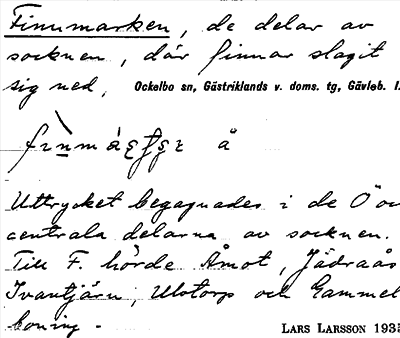 Finnmarken, de delar av
socknen, där finnar slagit
sig ned, Ockelbo sn, Gästriklands v. doms. tg, Gävleb. l.
å
Uttrycket begagnades i de
centrala delarna av socknen.
Till F. hörde Åmot, Jädraås
Ivantjärn, Ulvtorp och Gammel-
boning -
LARS LARSSON 1935